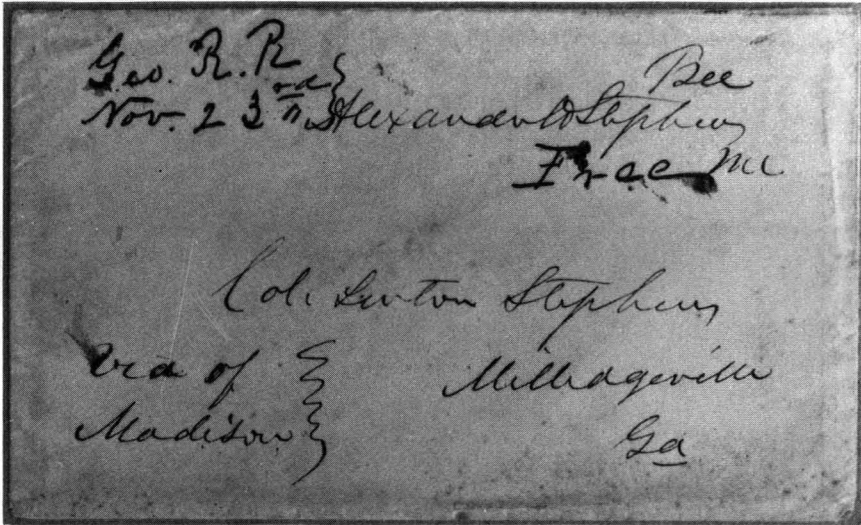 Geo. R. R
Nov. 23rd
Alexander H Stephens
Free
Col. Linton Stephens
via of
Madison
Milledgeville
Ga